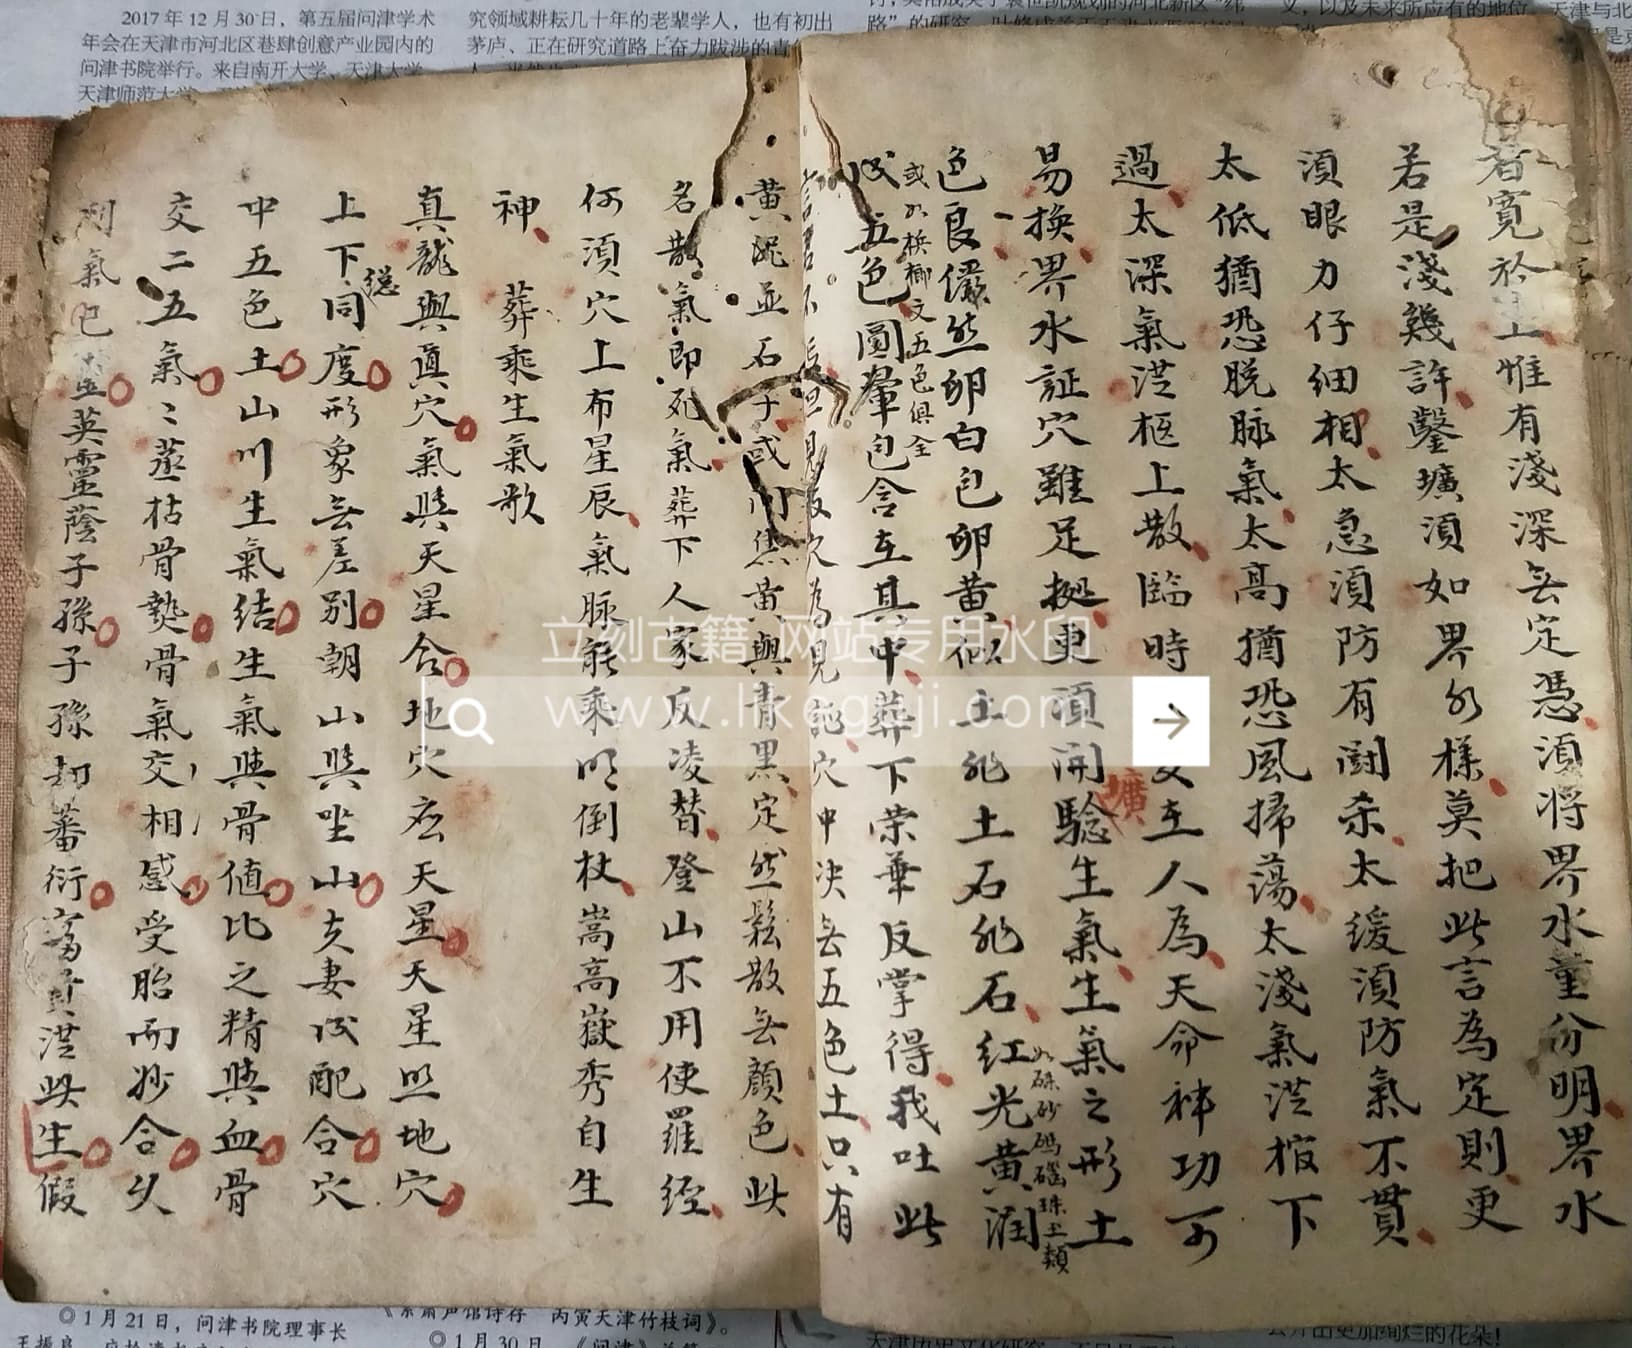 2017年12月30日，第五届问津学术
年会在天津市河北区巷肆创意产业园内的
问津书院举行。来自南开大学、天津大学、
天津师范大学
究领域耕耘几十年的老辈学人，也有初出
茅庐、正在研究道路上奋力跋涉的青
路”的研究
义，以及未来所应有的地位
天津与北
者寬於土惟有淺深無定憑須將界水董分明界水
若是淺幾許鑿壙須如界水樣莫把此言為定則更
須眼力仔細相太急須防有鬪杀太缓須防氣不貫
太低猶恐脱脉氣太髙猶恐風掃蕩太淺氣從棺下
過太深氣從柩上散臨時在人為天命神功可
壙
易換界水証穴雖足拠更須開驗生氣生氣之形土
如硃砂瑪磂珠玉類
色良儼然卵白包卵黄似土非土石非石紅光黄润
或如槟榔文五色俱全
成五色圓暈包含在其中葬下荣華反掌得我吐此
穴為見訛穴中决無五色土只有
黄泥並石子或黄與青黑定然鬆散無顔色此
名散氣即死氣葬下人家反凌替登山不用使羅經
何須穴上布星辰氣脉能乘明倒杖嵩高嶽秀自生
神 葬乘生氣歌
真龍與真穴氣與天星合地穴应天星天星照地穴
上下同度形象無差别朝山與坐山夫妻成配合穴
総
中五色土山川生氣結生氣與骨値比之精與血骨
交二五氣〻蒸枯骨𤍠骨氣交相感受胎而妙合久
則氣已靈英靈蔭子孫子孫却蕃衍富貴從此生假
立刻古籍 网站专用水印
www.likeguji.com
◎1月21日，问津书院理事长
丙寅天津竹枝词》。
◎1月30日，《问津》